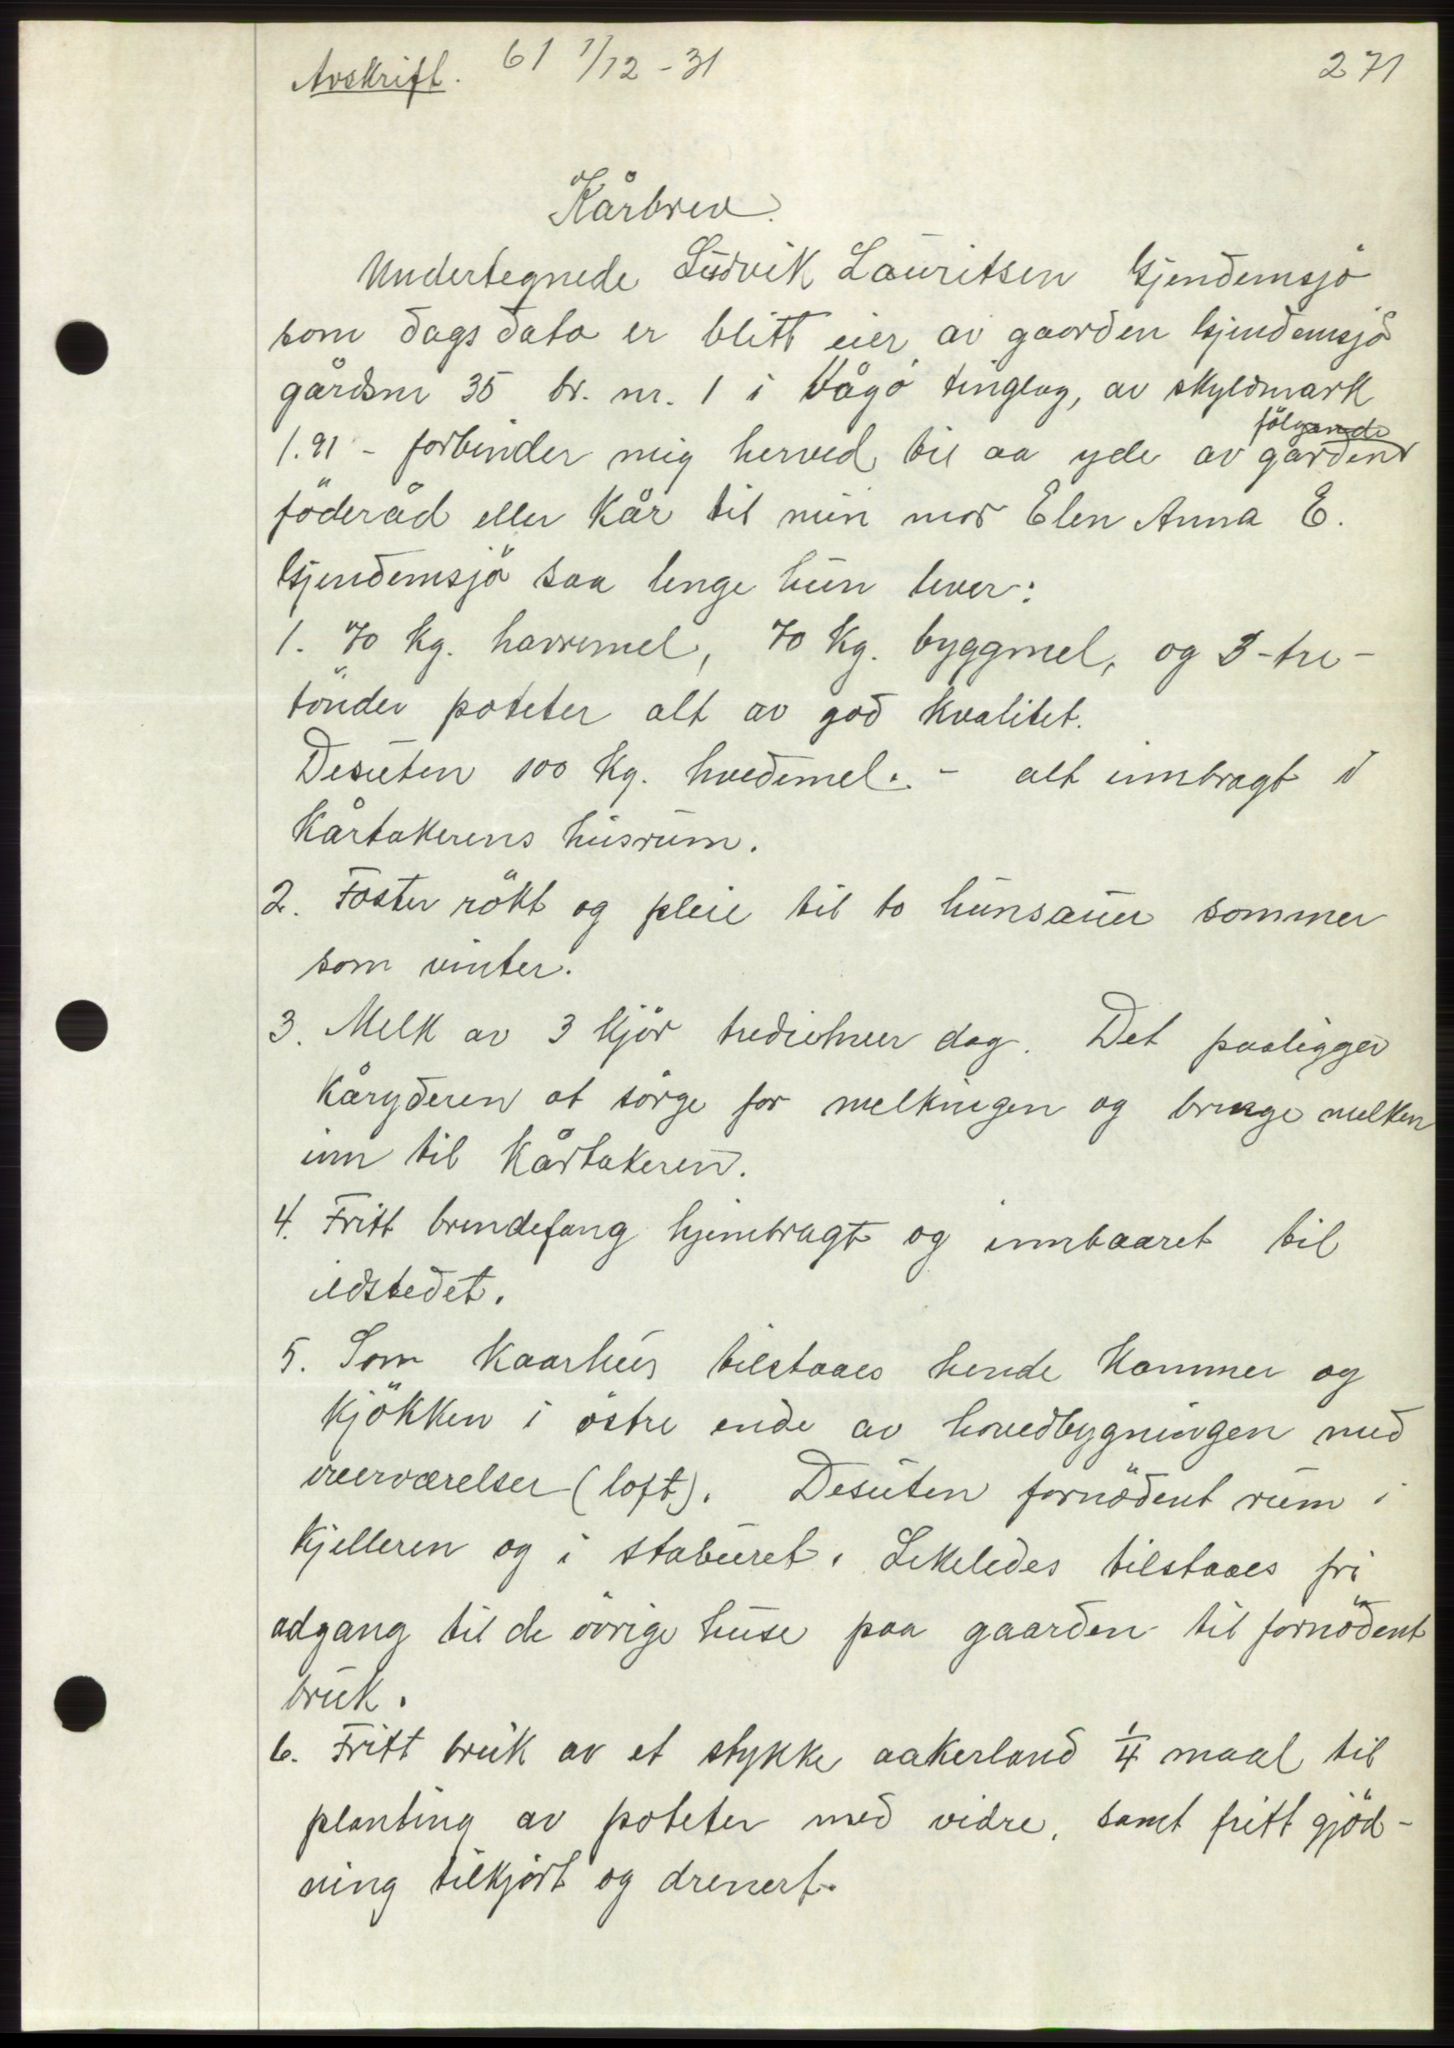 Avskrift. 61 1/12 - 31 271
Kårbrev.
Undertegnede Ludvik Lauritsen Gjendemsjö
som dags dato er blitt eier av gaarden Gjendemsjö
gårdsnr 35 br. nr. 1 i Vågö tinglag, av skyldmark
följande
1.91 - forbinder mig herved til aa yde av garden
föderåd eller kår til min mor Elen Anna E.
Gjendemsjö saa lenge hun lever:
1. 70 kg. havremel, 70 kg. byggmel, og 3 - tre -
tönder poteter alt av god kvalitet.
Desuten 100 kg. hvedemel. - alt innbragt i
kårtakerens husrum.
2. Foster rökt og pleie til to hunsauer sommer
som vinter.
3. Melk av 3 kjör trediehver dag. Det paaligger
kåryderen at sörge for melkingen og bringe melken
inn til kårtakeren.
4. Fritt brendefang hjembragt og innbaaret til
ildstedet.
5. Som kaarhus tilstaaes hende kammer og
kjökken i östre ende av hovedbygningen med
overværelser (loft). Desuten fornödent rum i
kjelleren og i staburet. Likeledes tilstaaes fri
adgang til de övrige huse paa gaarden til fornödent
bruk.
6. Fritt bruk av et stykke aakerland 1/4 maal til
planting av poteter med vidre, samt fritt gjöd-
ning tilkjört og drenert.